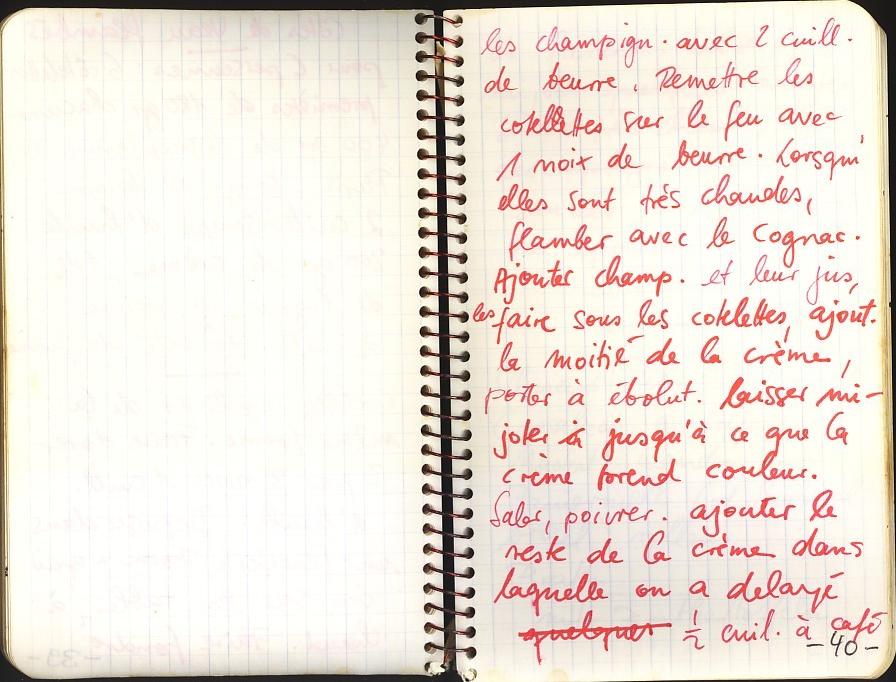 les champign. avec 2 cuill.
de beurre. Remettre les
cotellettes sur le feu avec
1 noix de beurre. Lorsqu'
elles sont très chaudes,
flamber avec le Cognac.
Ajouter champ. et leur jus,
les faire sous les cotelettes, ajout.
la moitié de la crème,
porter à ébolut. laisser mi-
joter à jusqu'à ce que la
crème prend couleur.
Saler, poivrer. ajouter le
reste de la crème dans
laquelle on a delayé
quelques ½ cuil. à café
-40-